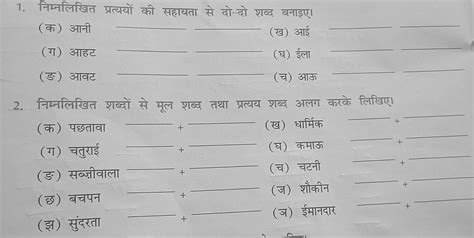 1. निम्नलिखित प्रत्ययों की सहायता से दो-दो शब्द बनाइए।
(क) आनी (ख) आई
(ग) आहट (घ) ईला
(ङ) आवट (च) आऊ
2. निम्नलिखित शब्दों से मूल शब्द तथा प्रत्यय शब्द अलग करके लिखिए।
(क) पछतावा + (ख) धार्मिक +
(ग) चतुराई + (घ) कमाऊ +
(ङ) सब्ज़ीवाला + (च) चटनी +
(छ) बचपन + (ज) शौकीन +
(झ) सुंदरता + (ञ) ईमानदार +